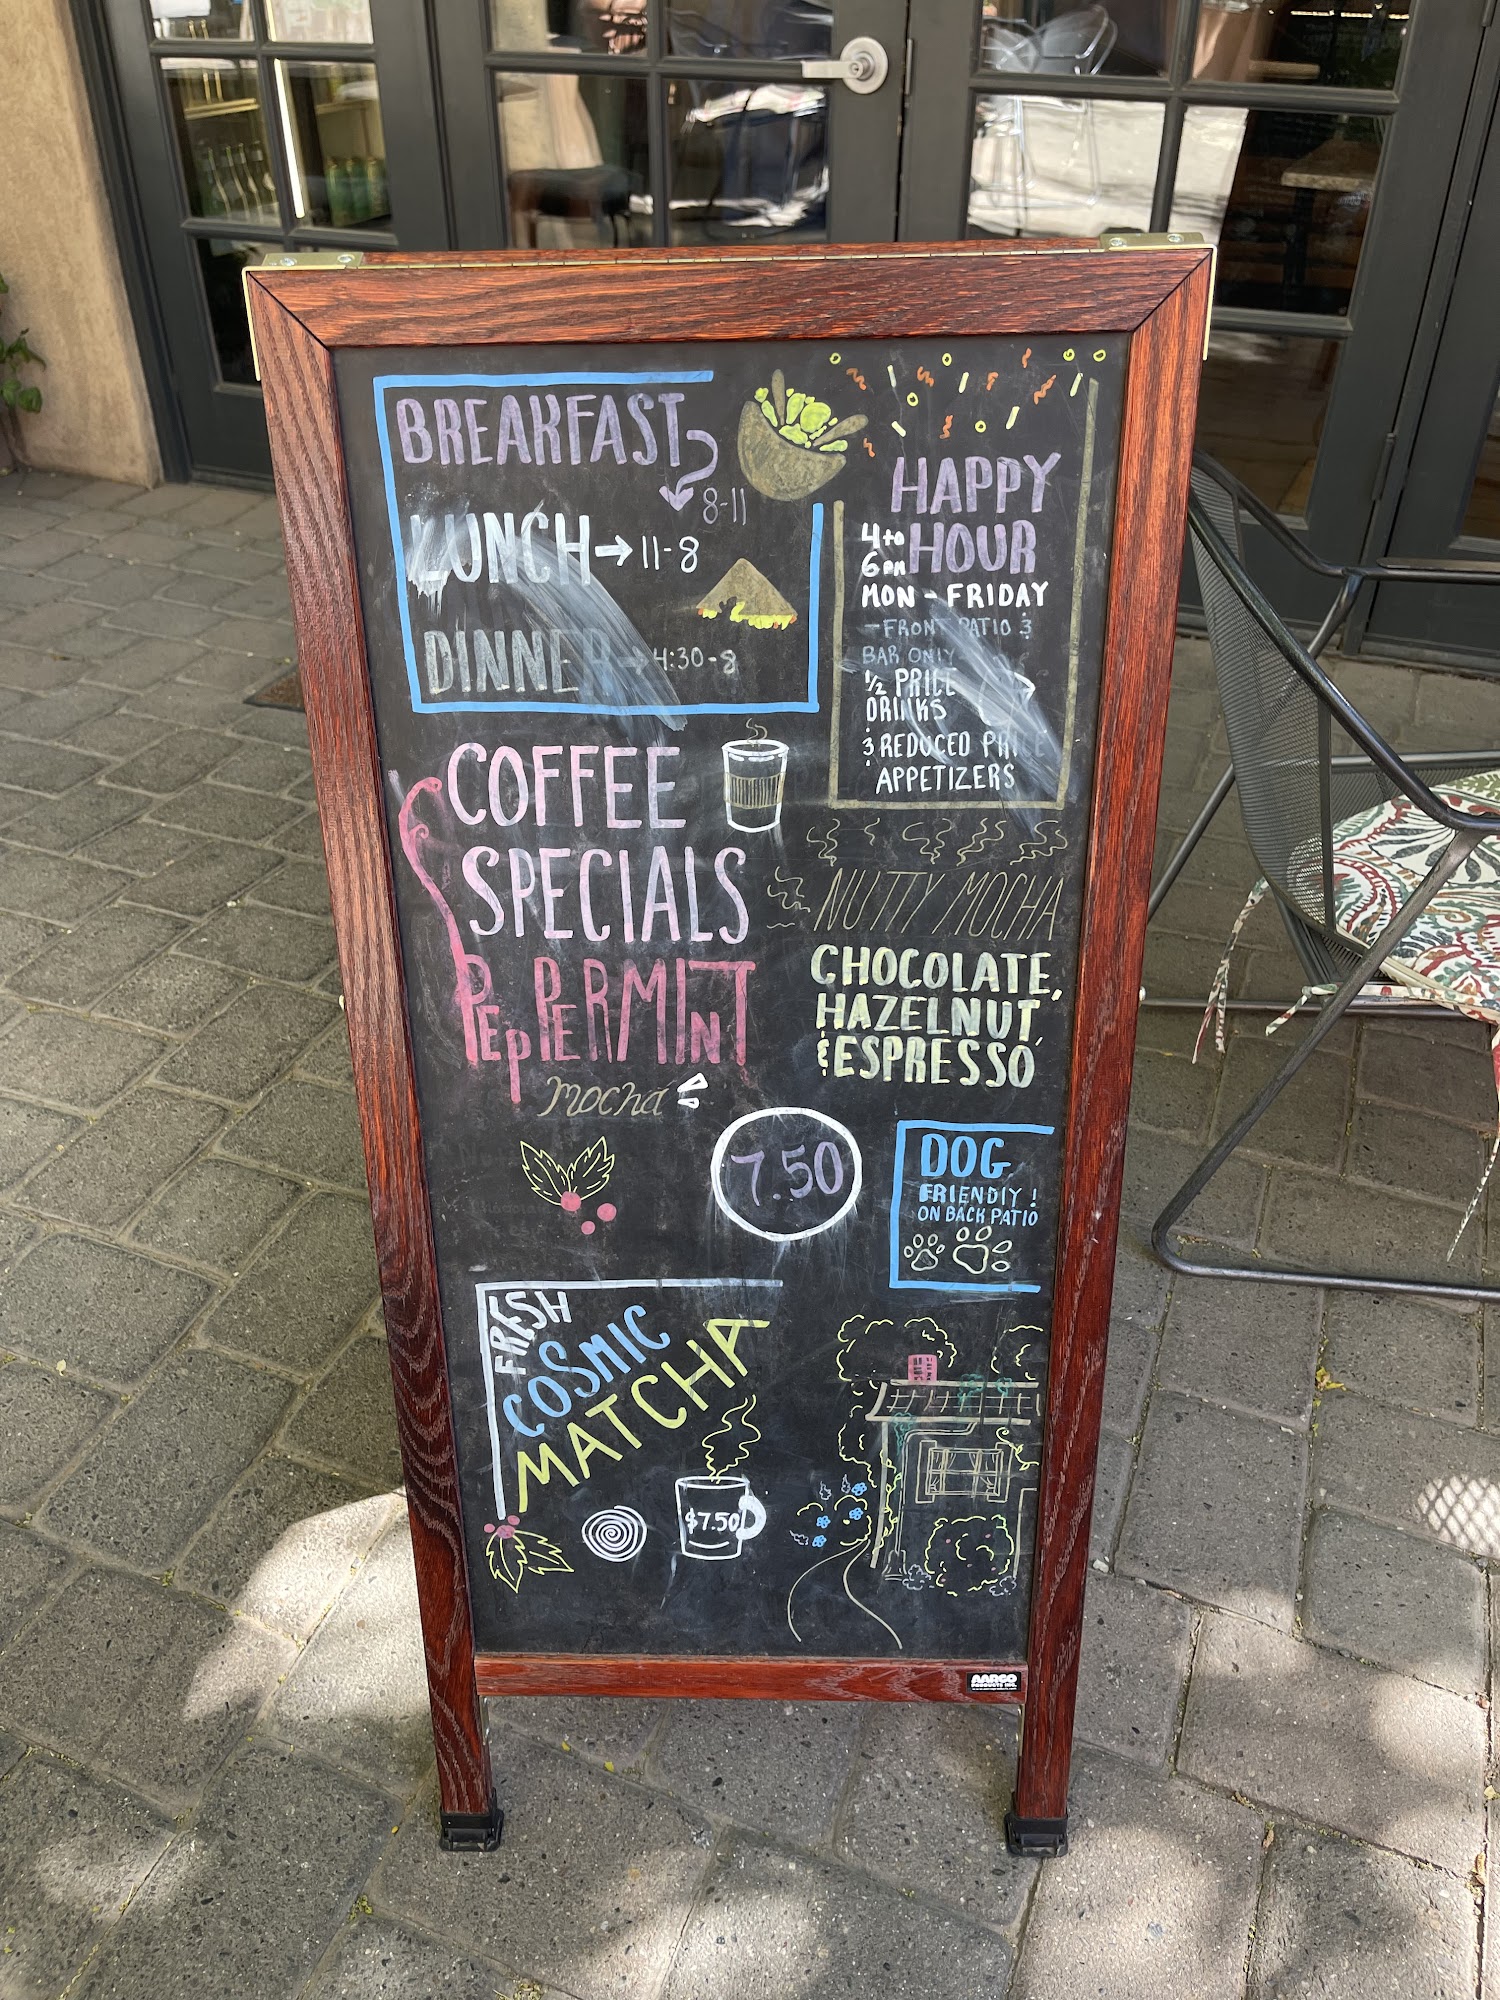 BREAKFAST
8-11
LUNCH → 11-8
DINNER → 4:30-8
HAPPY
4 to 6 PM HOUR
MON - FRIDAY
- FRONT PATIO &
BAR ONLY
1/2 PRICE
DRINKS
& REDUCED PRICE
APPETIZERS
COFFEE
SPECIALS
PEPPERMINT
mocha
NUTTY MOCHA
CHOCOLATE,
HAZELNUT,
& ESPRESSO
7.50
DOG
FRIENDLY!
ON BACK PATIO
FRESH
COSMIC
MATCHA
$7.50
AARCO
PRODUCTS INC.